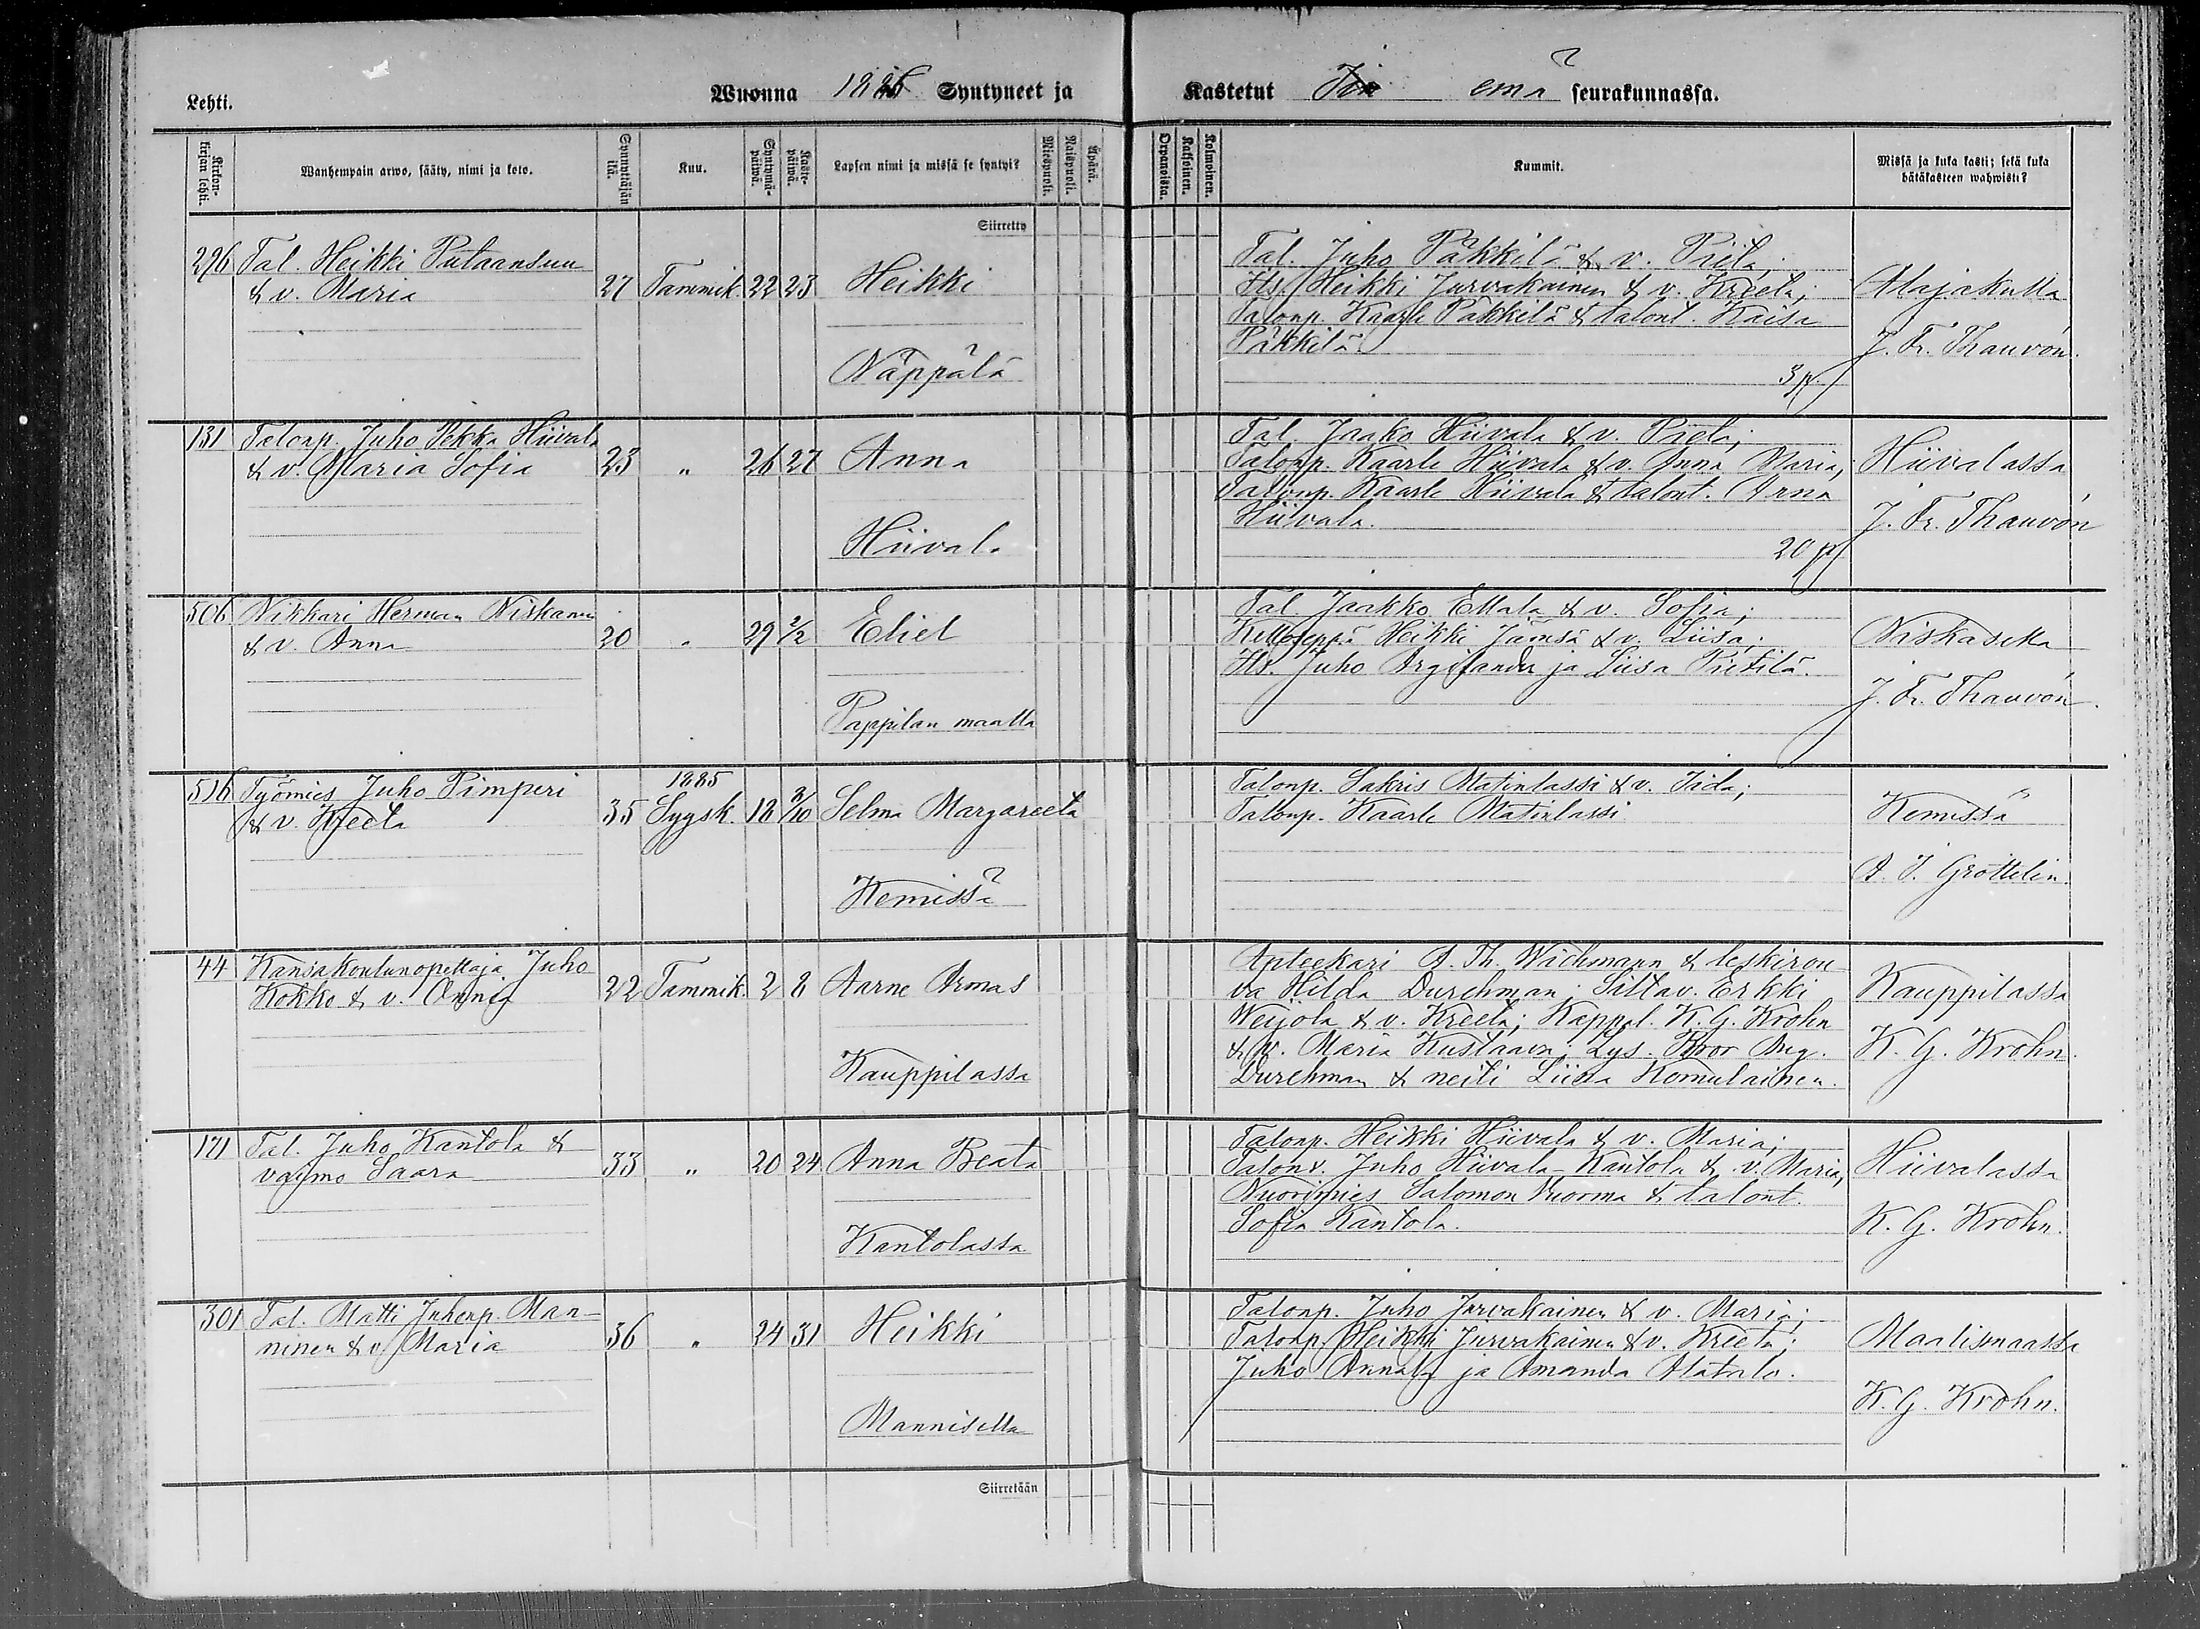 Lehti.
Wuonna 1886 Syntyneet ja Kastetut Iin emä seurakunnassa.
Kirkonkirjan lehti.
Wanhempain arwo, sääty, nimi ja koto.
Synnyttäjän ikä.
Kuu.
Syntymäpäiwä.
Kastepäiwä.
Lapsen nimi ja missä se syntyi?
Miespuoli.
Naispuoli.
Äpärä.
Orpanoista.
Kaksoinen.
Kolmoinen.
Kummit.
Missä ja kuka kasti; sekä kuka hätäkasteen wahwisti?
Siirretty
296 Tal. Heikki Putaansuu
& v. Maria 27 Tammik. 22 23 Heikki
Näppälä
Tal. Juho Päkkilä & v. Pieta;
Its. Heikki Jurvakainen & v. Kreeta;
Talonp. Kaarle Päkkilä & talont. Kaisa
Päkkilä.
3 p.
Alajakulla
J. Fr. Thauvón.
131 Talonp. Juho Pekka Hiivala
& v. Maria Sofia 23 " 26 27 Anna
Hiivala
Tal. Jaako Hiivala & v. Pieta;
Talonp. Kaarle Hiivala & v. Anna Maria;
Talonp. Kaarle Hiivala & talont. Anna
Hiivala.
20 p.
Hiivalassa
J. Fr. Thauvón
506 Nikkari Herman Niskanen
& v. Anna 20 " 29 2/2 Eliel
Pappilan maalla
Tal. Jaakko Ellala & v. Sofia;
Kelloseppä Heikki Jämsä & v. Liisa;
Its. Juho Argilander ja Liisa Pietilä.
Niskasella
J. Fr. Thauvón.
516 Työmies Juho Pimperi
1885
& v. Kreeta 35 Syysk. 18 3/10 Selma Margareeta
Kemissä
Talonp. Sakris Matinlassi & v. Iida;
Talonp. Kaarle Matinlassi
Kemissä
A. I. Gröttelin.
44 Kansakoulunopettaja Juho
Kokko & v. Onnia 22 Tammik. 2 8 Aarne Armas
Kauppilassa
Apteekari A. Th. Wichmann & leskirou
va Hilda Durchman; Siltav. Erkki
Weijola & v. Kreeta; Kappal. K. G. Krohn
& v. Maria Kustaava; Lys. Ivor Aug.
Durchman & neiti Liina Komulainen.
Kauppilassa
K. G. Krohn.
171 Tal. Juho Kantola &
vaimo Saara 33 " 20 24 Anna Beata
Kantolassa
Talonp. Heikki Hiivala & v. Maria;
Talonp. Juho Hiivala-Kantola & v. Maria,
Nuorimies Salomon Vuorma & talont.
Sofia Kantola.
Hiivalassa
K. G. Krohn.
301 Tal. Matti Juhonp. Man-
ninen & v. Maria 36 " 24 31 Heikki
Mannisella
Talonp. Juho Jurvakainen & v. Maria;
Talonp. Heikki Jurvakainen & v. Kreeta;
Juho Annala ja Amanda Alatalo.
Maalismaassa
K. G. Krohn.
Siirretään